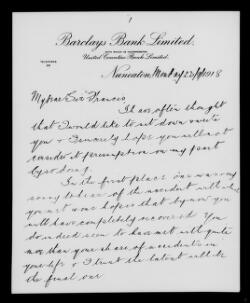 Barclays Bank Limited.
United Counties Bank Limited.
Nuneaton, Monday 22/4/1918
My dear Sir Francis,
I have often thought
that I would like to sit down & write
you & sincerely hope you will not
consider it presumption on my part
by so doing.
In the first place one was very
sorry to hear of the accident
you met & one hopes that by now you
will have completely recovered. You
do indeed seem to have met with quite
more than your share of accidents in
your life & I trust the latest will be
the final one